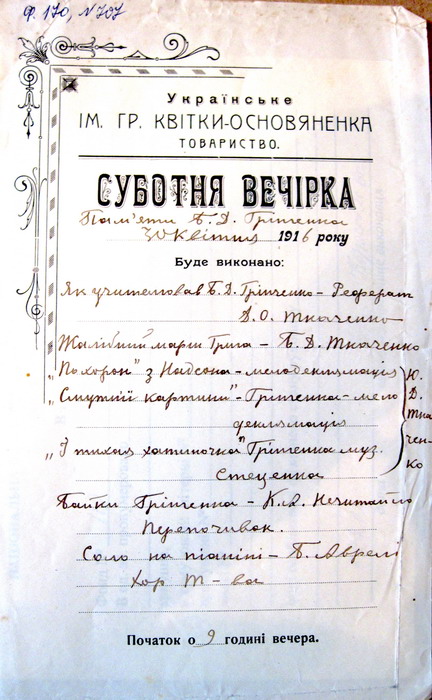 Ф. 170, N 707
Українське
ІМ. ГР. КВІТКИ-ОСНОВЯНЕНКА
ТОВАРИСТВО.
СУБОТНЯ ВЕЧІРКА
Пам'яти Б. Д. Грінченка
30 Квітня 1916 року
Буде виконано:
Як учителював Б. Д. Грінченко - Реферат
Д. О. Ткаченко
Жалібний марш Грига - Б. Д. Ткаченко
„Похорон" з Надсона - мелодекламація
„Смутні картини" - Грінченка - мело
декламація
„І тихая хатиночка" Грінченка муз.
Стеценка
Ю. Д. Ткаченко
Байки Грінченка - К. Нечитайло
Перепочивок.
Соло на піаніні - Б. Аврелі
Хор Т-ва
Початок о 9 годині вечера.